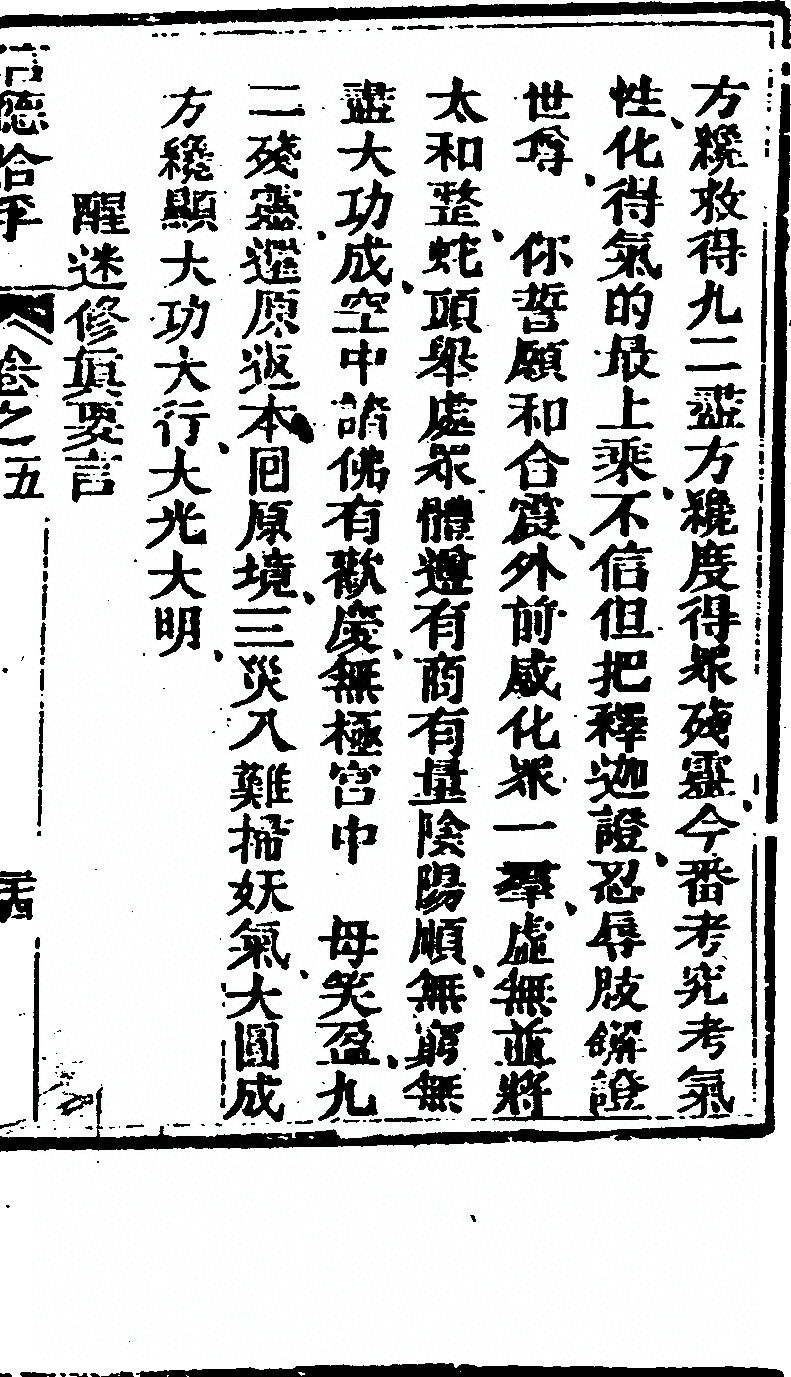 方纔救得九二靈方纔度得眾殘靈今番考究考氣
性化得氣的最上乘不信但把釋迦證忍辱肢解證
世尊　你誓願和合震外前感化眾一羣虛無並將
太和整蛇頭舉處眾體邅有商有量陰陽順無窮無
盡大功成空中諸佛有歡慶無極宮中　母笑盈九
二殘靈還原返本囘原境三災八難掃妖氣大圓成
方纔顯大功大行大光大明
醒迷修眞要言
卷之五